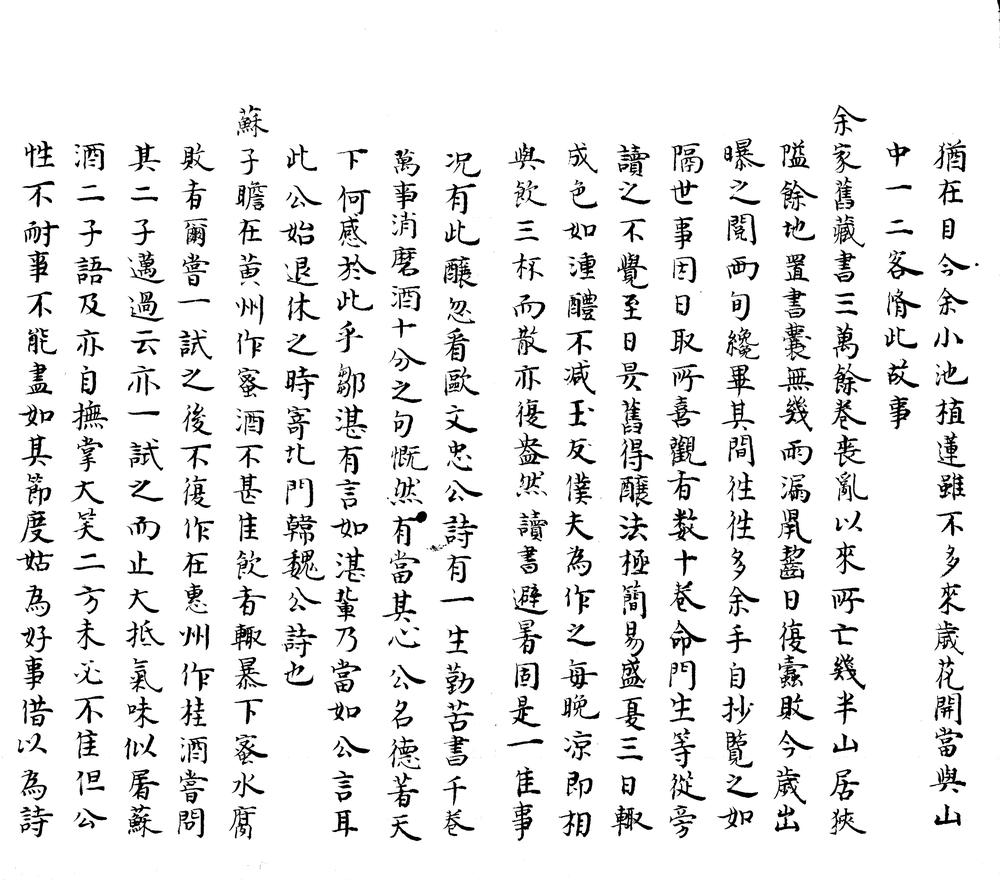 猶在目今余小池植蓮雖不多來歲花開當與山
中一二客脩此故事
余家舊藏書三萬餘卷喪亂以來所亡幾半山居狹
隘餘地置書囊無幾雨漏鼠齧日復蠹敗今歲出
曝之閱兩旬纔畢其間徃徃多余手自抄覽之如
隔世事因日取所喜觀有数十卷命門生等從旁
讀之不覺至日昃舊得釀法極簡易盛夏三日輒
成色如湩醴不减玉友僕夫為作之每晚凉即相
與飲三杯而散亦復盎然讀書避暑固是一佳事
况有此釀忽看歐文忠公詩有一生勤苦書千卷
萬事消磨酒十分之句慨然有當其心公名德著天
下何感於此乎鄒湛有言如湛輩乃當如公言耳
此公始退休之時寄北門韓魏公詩也
蘇子瞻在黄州作蜜酒不甚佳飲者輒暴下蜜水腐
敗者爾嘗一試之後不復作在惠州作桂酒嘗問
其二子邁過云亦一試之而止大抵氣味似屠蘇
酒二子語及亦自撫掌大笑二方未必不佳但公
性不耐事不能盡如其節度姑為好事借以為詩